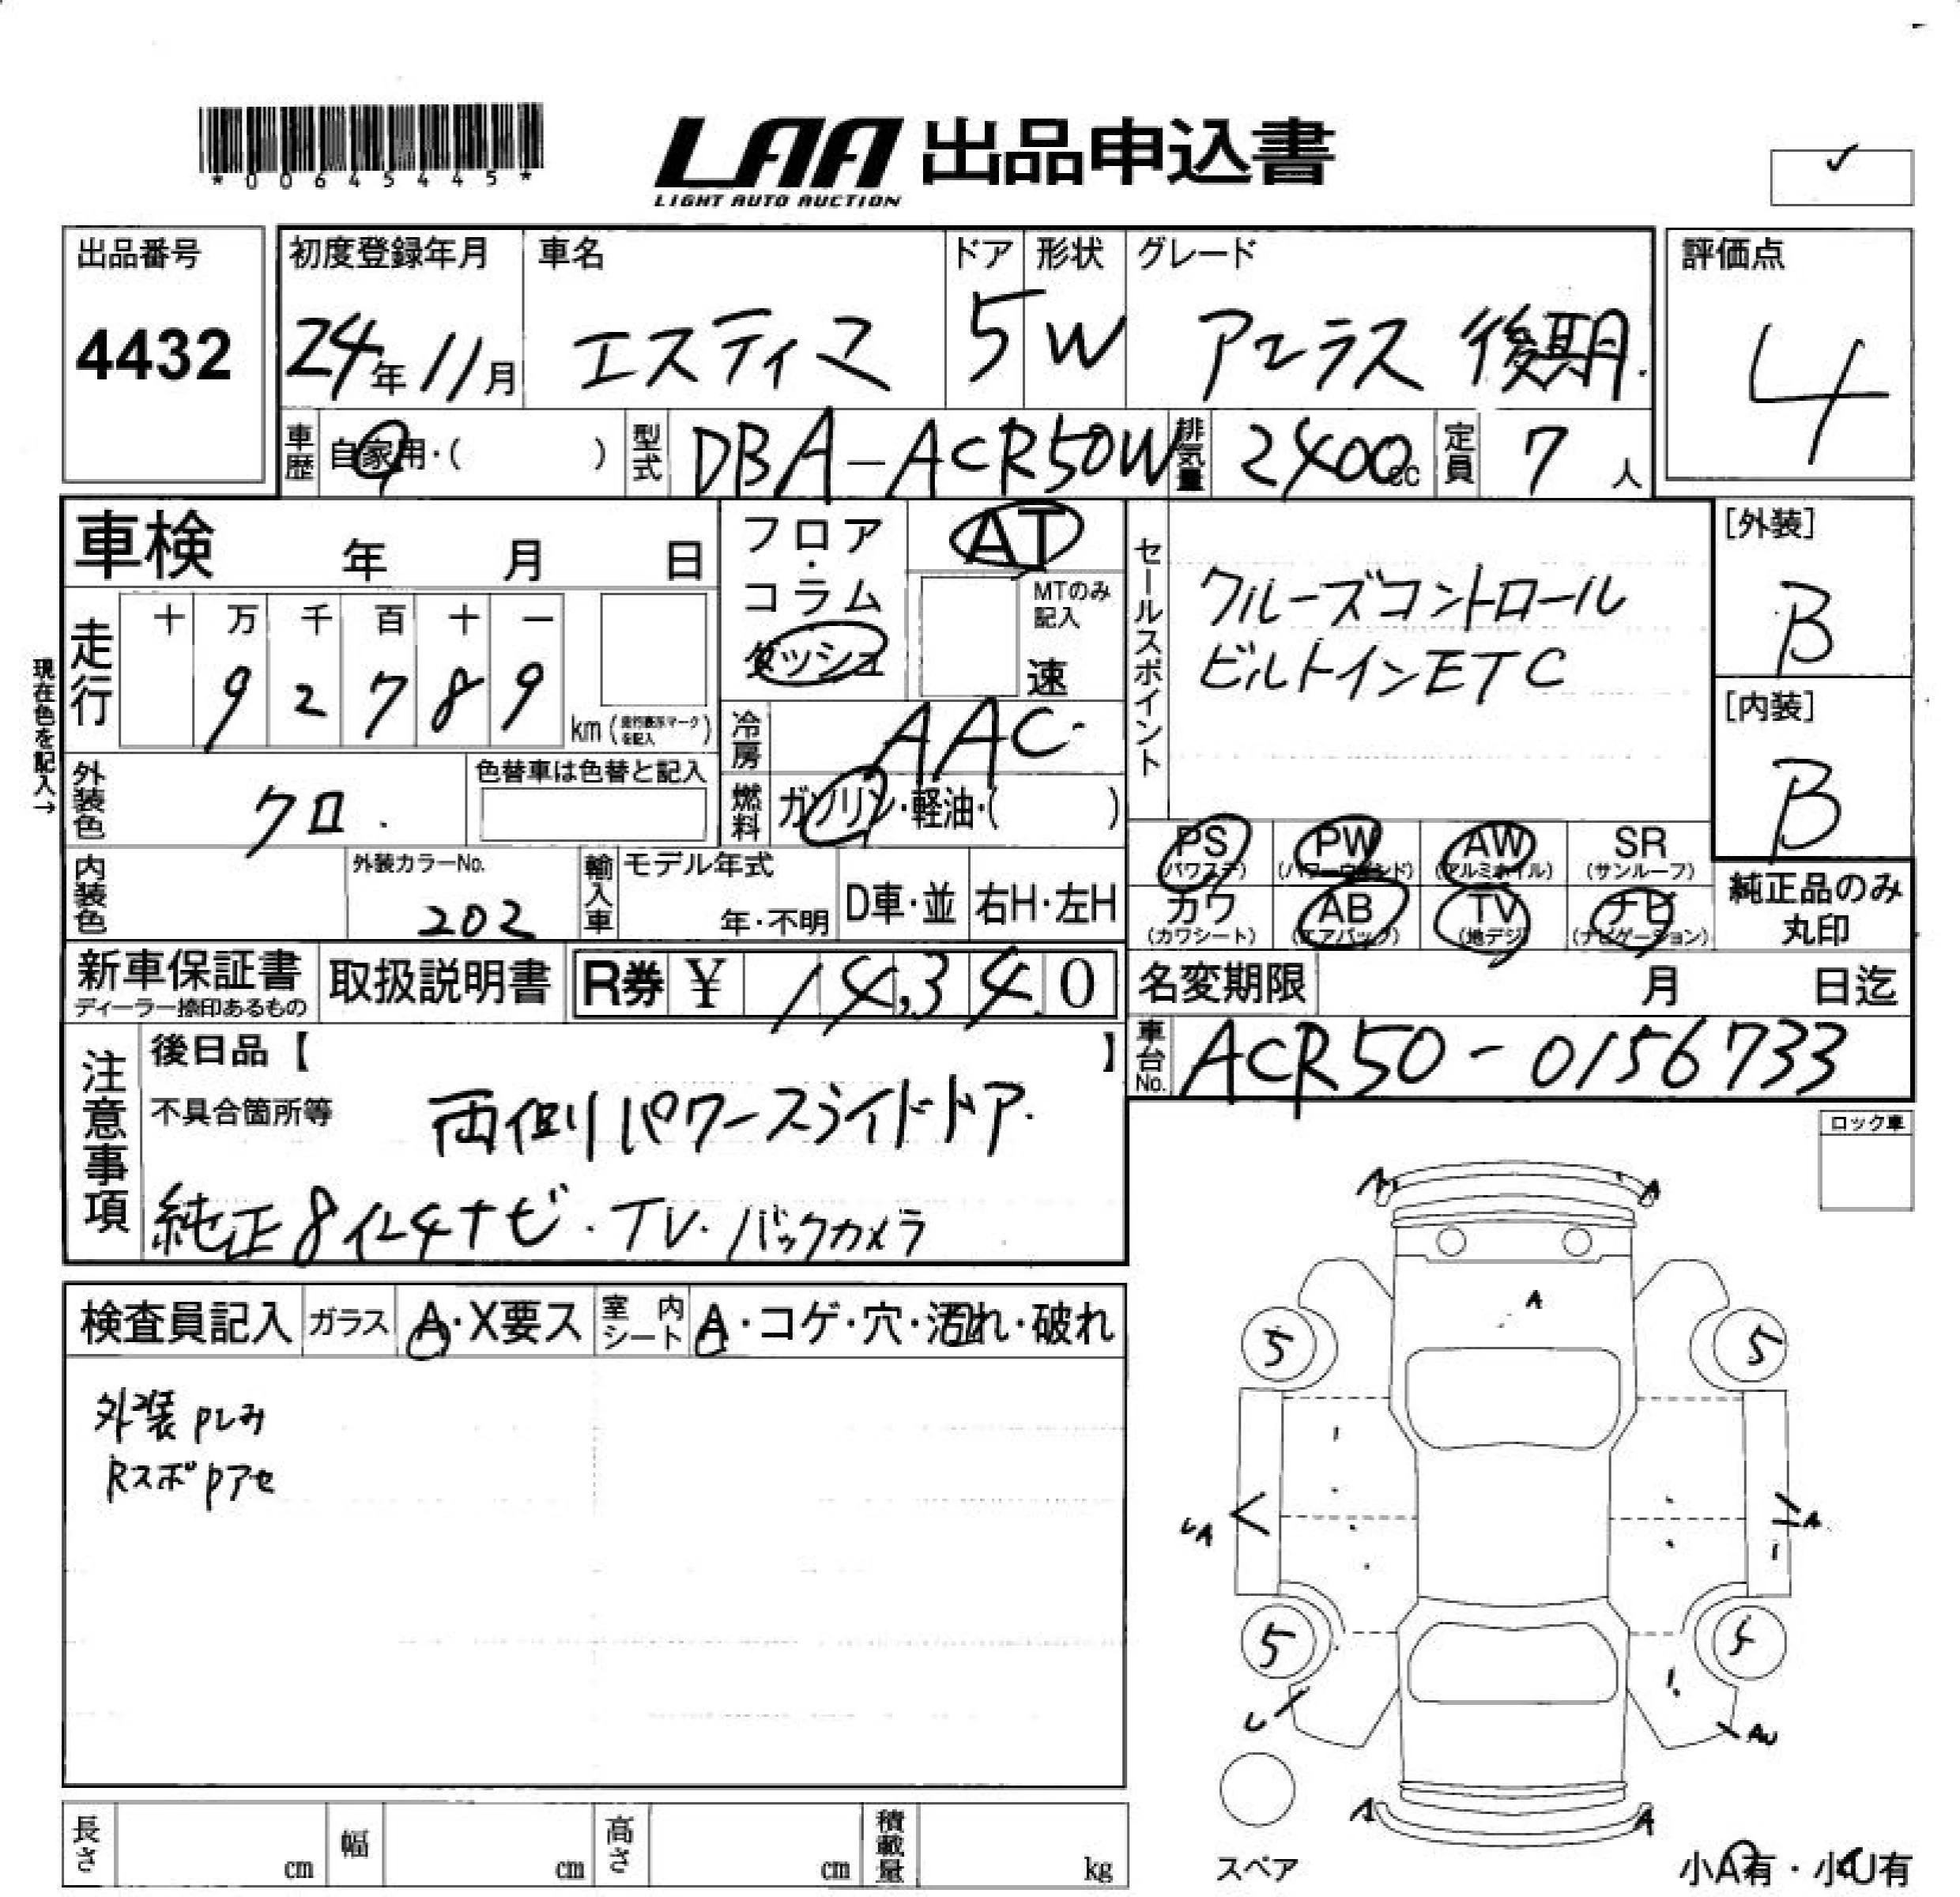 *00645445*
LAA 出品申込書
LIGHT AUTO AUCTION
出品番号
4432
初度登録年月
24年11月
車名
エスティマ
ドア
5
形状
W
グレード
アエラス 後期.
評価点
4
車歴
自家用・( )
型式
DBA-ACR50W
排気量
2400cc
定員
7人
車検 年 月 日
フロア・コラム
ダッシュ
AT
MTのみ記入
速
セールスポイント
クルーズコントロール
ビルトインETC
[外装]
B
[内装]
B
現在色を記入→
走行
十 万 千 百 十 一
9 2 7 8 9
km (走行表示マークを記入)
冷房
AAC
外装色
クロ.
色替車は色替と記入
燃料
ガソリン・軽油・( )
PS (パワステ)
PW (パワーウインド)
AW (アルミホイル)
SR (サンルーフ)
カワ (カワシート)
AB (エアバック)
TV (地デジ)
ナビ (ナビゲーション)
純正品のみ丸印
内装色
外装カラーNo.
202
輸入車
モデル年式
年・不明
D車・並
右H・左H
新車保証書
ディーラー捺印あるもの
取扱説明書
R券 ¥ 14,340
名変期限 月 日迄
車台No.
ACR50-0156733
注意事項
後日品【 】
不具合箇所等
両側パワースライドドア.
純正8インチナビ・TV・バックカメラ
ロック車
検査員記入
ガラス
A・X要ス
室内シート
A・コゲ・穴・汚れ・破れ
外装Pしみ
RスポPアセ
A A
A
5 5
A
A
5 4
AU
A A
スペア
小A有・小U有
長さ cm
幅 cm
高さ cm
積載量 kg